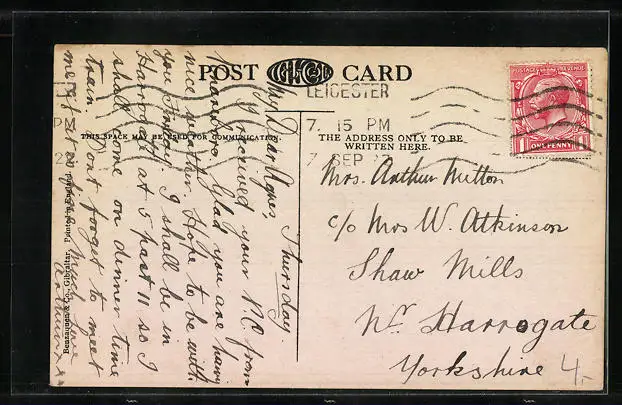 POST CARD
LEICESTER
7. 15 PM
7 SEP
PM
POSTAGE REVENUE
ONE PENNY
THIS SPACE MAY BE USED FOR COMMUNICATION.
THE ADDRESS ONLY TO BE
WRITTEN HERE.
Mrs. Arthur Mitton
c/o Mrs W. Atkinson
Shaw Mills
Nr. Harrogate
Yorkshire
4.-
Thursday.
My Dear Agnes,
I received your P.C. from
Glad you are having
nice weather. Hope to be with
you Sunday. I shall be in
Harrogate at 5 past 11 so I
shall come on dinner time
train. Dont forget to meet
me
much love
Arthur xxx
Benzaquen & Co., Gibraltar. Printed in England.